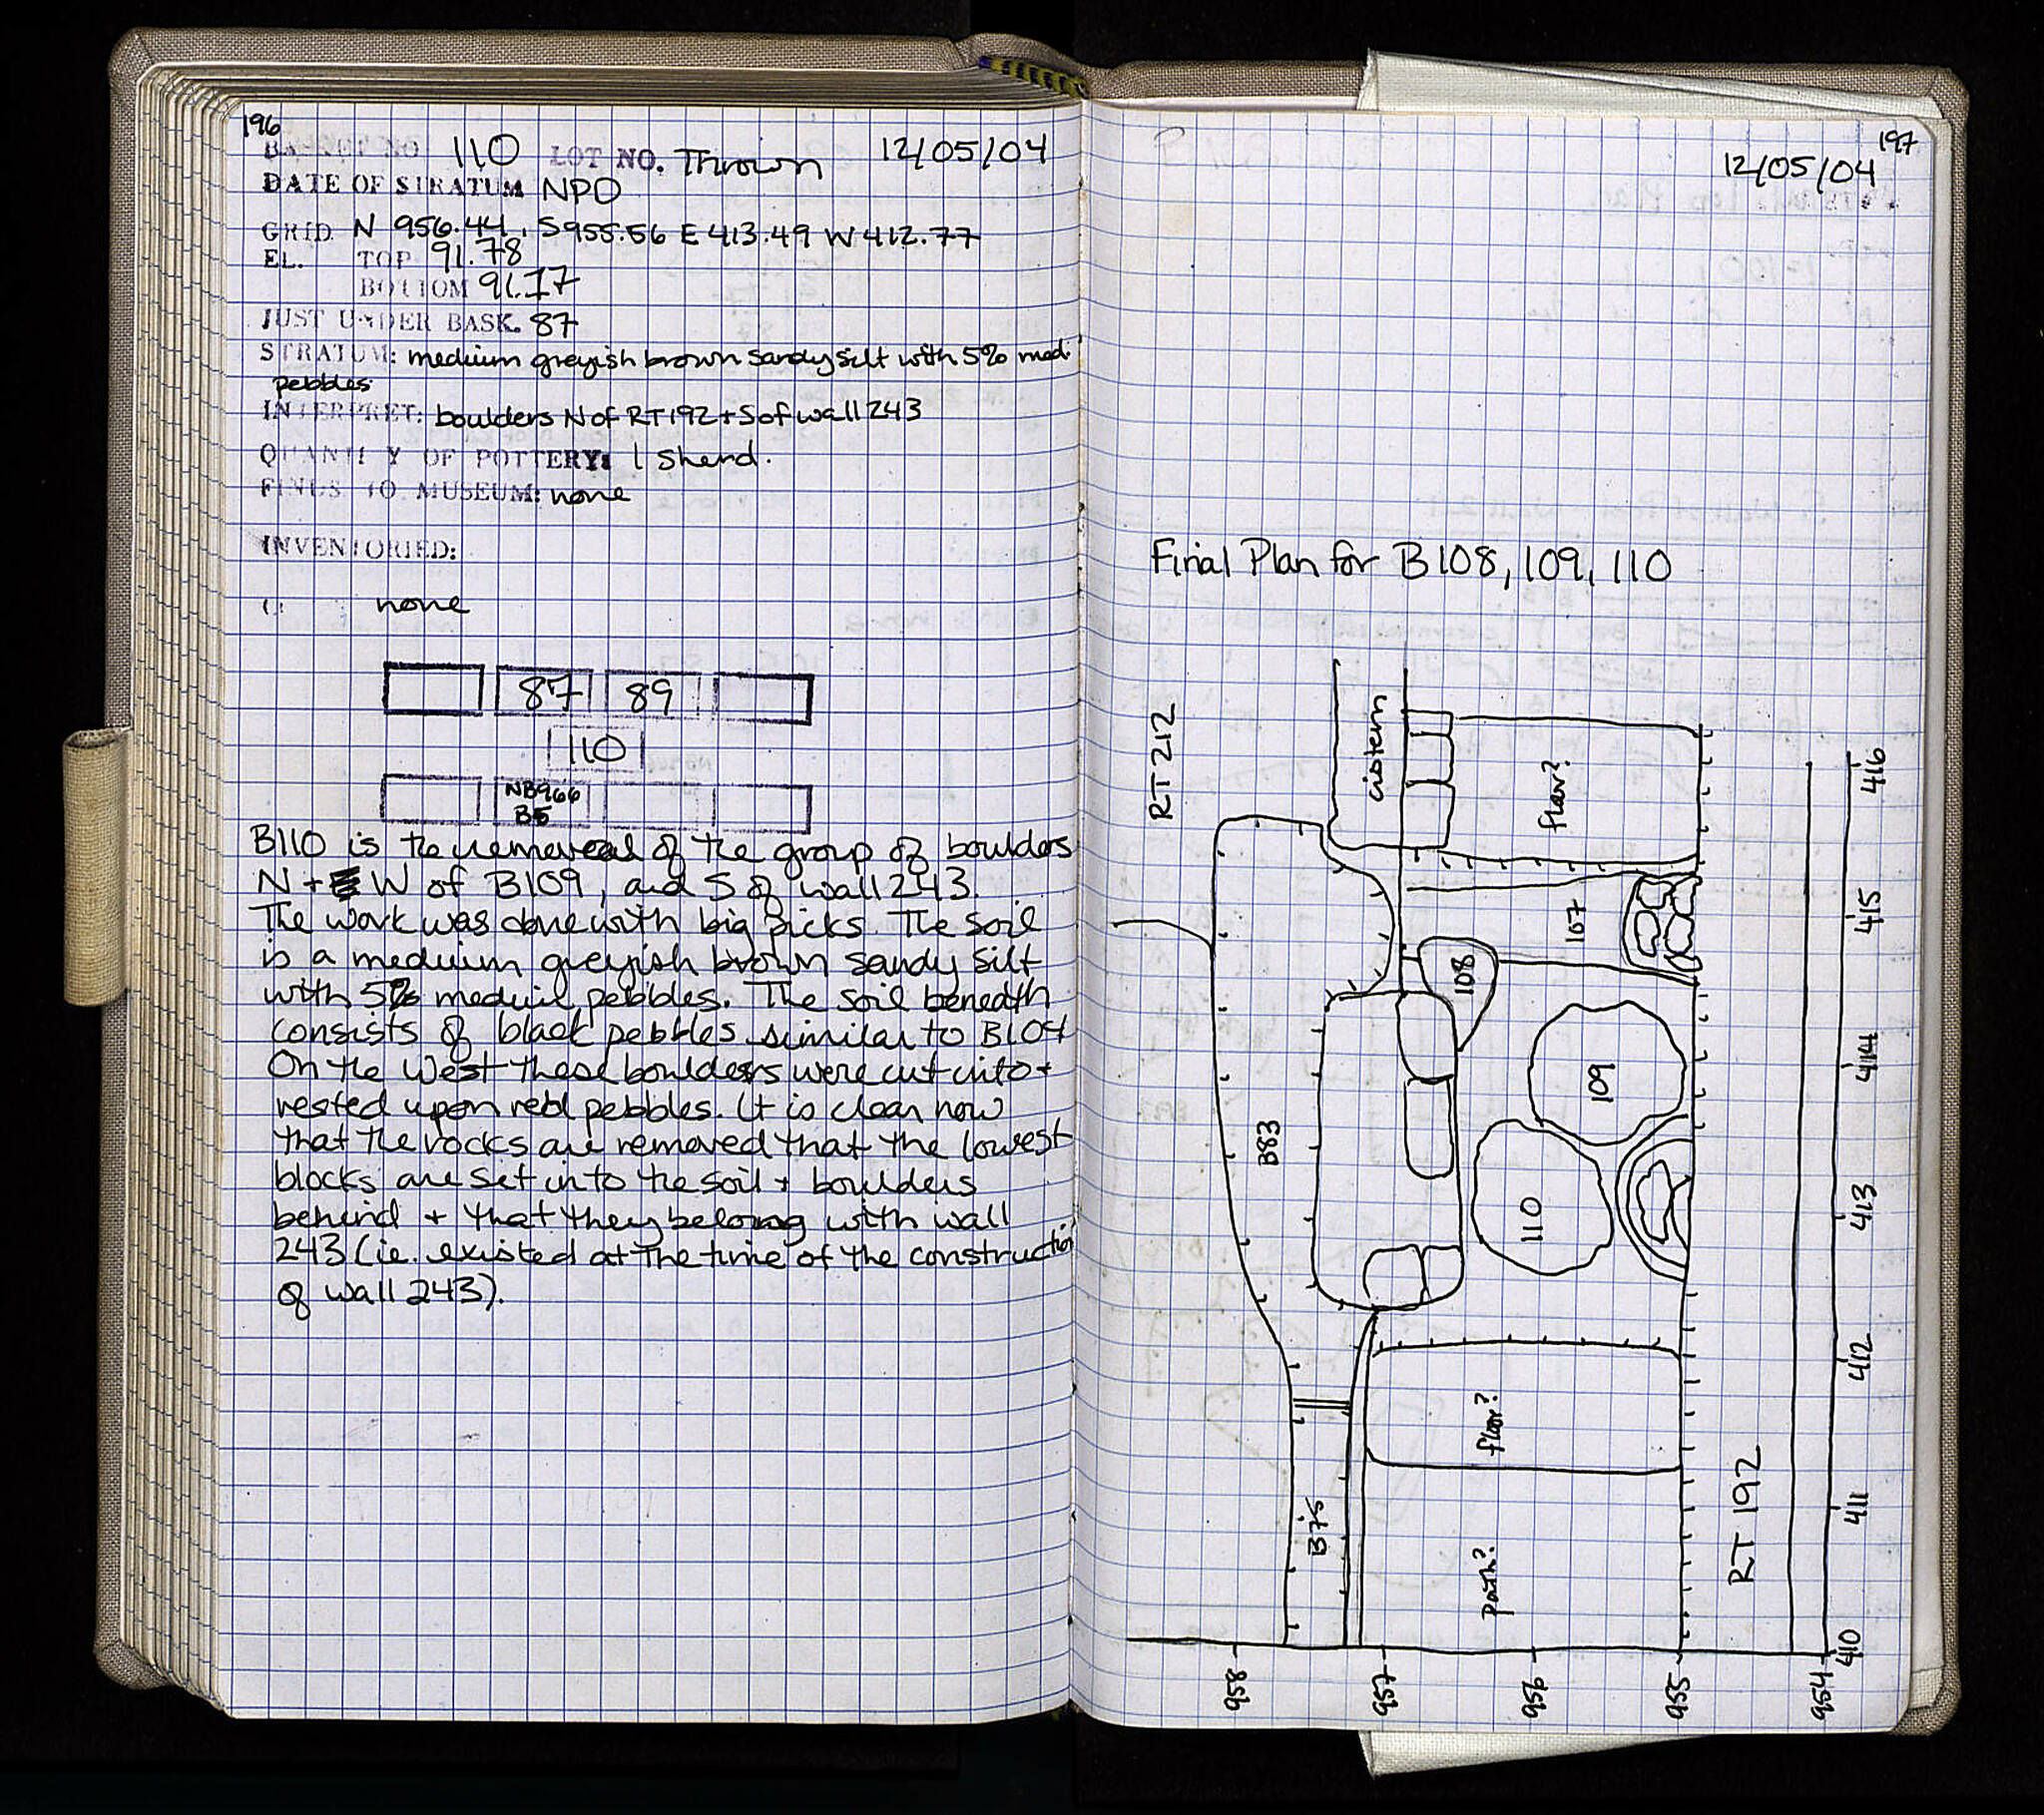 196
BASKET NO 110 LOT NO. Thrown 12/05/04
DATE OF STRATUM NPD
GRID N 956.44, S955.56 E 413.49 W 412.77
EL. TOP 91.78
BOTTOM 91.17
JUST UNDER BASK. 87
STRATUM: medium greyish brown sandy silt with 5% med
pebbles
INTERPRET: boulders N of RT192 + S of wall 243
QUANTITY OF POTTERY: 1 Sherd.
FINDS TO MUSEUM: none
INVENTORIED:
none
87 89
110
NB966
B5
B110 is the removal of the group of boulders
N + W of B109, and S of wall 243.
The work was done with big picks. The soil
is a medium greyish brown sandy silt
with 5% medium pebbles. The soil beneath
consists of black pebbles similar to B104
On the West these boulders were cut into +
rested upon red pebbles. It is clear now
that the rocks are removed that the lowest
blocks are set into the soil + boulders
behind + that they belong with wall
243 (ie. existed at the time of the construction
of wall 243).
197
12/05/04
Final Plan for B108, 109, 110
RT 212
cistern
floor?
416
415
107
108
414
109
B83
413
110
412
floor?
411
B75
path?
RT 192
410
958
957
956
955
954